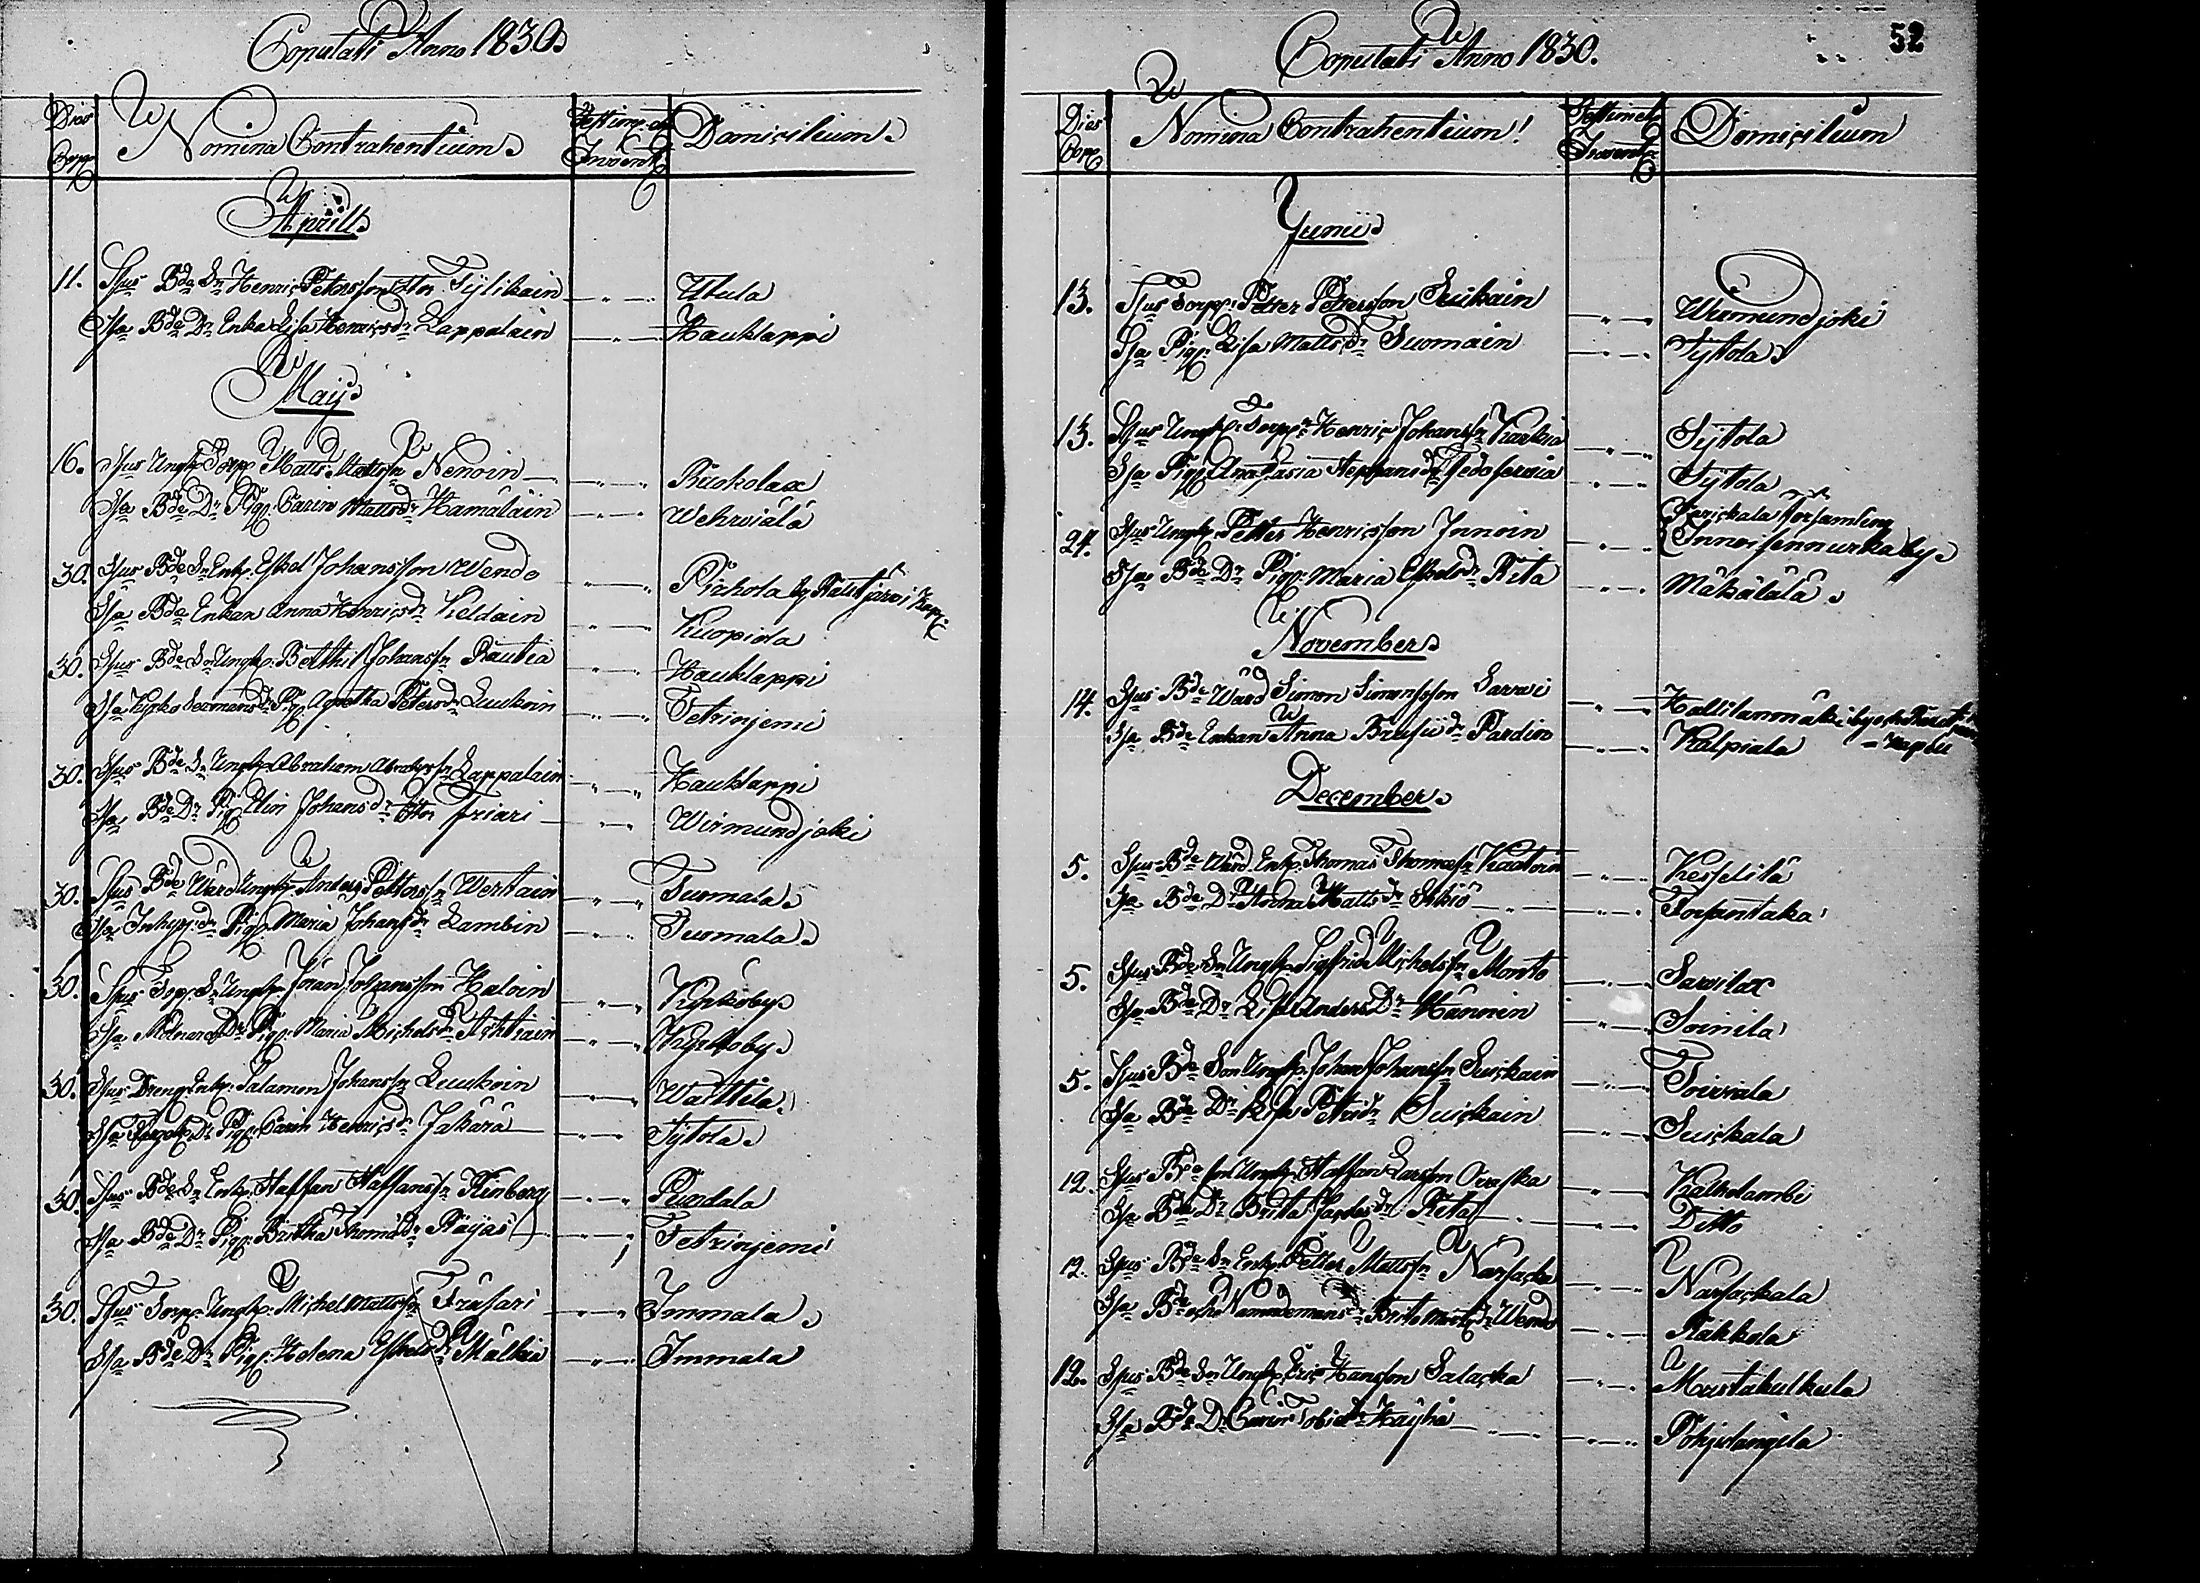 Copulati Anno 1830
Dies Cop. Nomina Contrahentium Testim. et Domicilium
Aprill
11. Spus Bde Sn Henric Petersson Tylikain — " — Utula
Spa Bde Dr Enka Lisa Henricsdr Lappalain — " — Hauklappi
Maij
16. Spus Ungk. Torp. Matts Mattssn Nenoin — " — Ruokolax
Spa Bde Dr Pig. Carin Mattsdr Hämäläin — " — Wehwiälä
30. Spus Bde Sn Enk. Eskel Johansson Wendo — " — Pirhola by Rautjärvi Kap.
Spa Bde Enkan Anna Henricsdr Keldain — " — Kuopiola
30. Spus Bde Sn Ungk. Berthil Johanssn Rautia — " — Hauklappi
Spa Kyrko Pig. Agnetha Petersdr Luukoin — " — Tetrinjemi
30. Spus Bde Sn Ungk. Abraham Abrahssn Lappalain — " — Hauklappi
Spa Bde Dr Pig. Elin Johansdr Friari — " — Wirmundjoki
30. Spus Bde Wärd Ungk. Anders Pettersn Wertain — " — Suomala
Spa Inhys. dr Pig. Maria Johansdr Lambin — " — Suomala
30. Spus Torp. Sn Ungk. Jöran Johansson Haloin — " — Kyrkoby
Spa Dr Pig. Maria Michelsdr Achtiain — " — Kyrkoby
30. Spus Dreng Enk. Salamon Johanssn Luukoin — " — Wattila
Spa Dr Pig. Carin Henricsdr Jakara — " — Sytola
30. Spus Bde Sn Enk. Staffan Staffanssn Kinberg — " — Puondala
Spa Bde Dr Pig. Britha Thomasdr Räyäs — " — Tetrinjemi
30. Spus Torp. Ungk. Michel Mattssn Träsari — " — Immala
Spa Bde Dr Pig. Helena Eskelsdr Mälkiä — " — Immala
52
Copulati Anno 1830.
Dies Cop. Nomina Contrahentium Testim. et Domicilium
Junii
13. Spus Torp. Petter Pettersson Suikain — " — Wirmundjoki
Spa Pig. Lisa Mattsdr Suomain — " — Sytola
13. Spus Ungk. Torp. Henric Johanssn Karkia — " — Sytola
Spa Pig. Anastasia Stephansdr Fedoserwia — " — Sytola
24. Spus Ungk. Petter Henricsson Innoin — " — Parickala församling Innoisennurka by
Spa Bde Dr Pig. Maria Eskelsdr Rita — " — Mäkälälä
November
14. Spus Bde Wärd Simon Simonsson Sarwi — " — Hallilanmäki by och Rautjärvi Kapell
Spa Bde Enkan Anna Brusiidr Pardin — " — Kalpiala
December
5. Spus Bde Wärd Enk. Thomas Thomassn Kaatoin — " — Kesselilä
Spa Bde Dr Anna Mattsdr — " — Torsantaka
5. Spus Bde Sn Ungk. Sigfrid Michelssn Monto — " — Sarvilax
Spa Bde Dr Lisa Andersdr Hännoin — " — Soinila
5. Spus Bde Son Ungk. Johan Johanssn Suickain — " — Toivala
Spa Bde Dr Lisa Petrisdr Suickain — " — Suickala
12. Spus Bde Son Ungk. Staffan Larssn Orraska — " — Kalholambi
Spa Bde Dr Brita Rita — " — Ditto
12. Spus Bde Sn Enk. Petter Mattssn Narsacka — " — Narsackala
Spa Bde och Nämndemansdr Brita Wendo — " — Rakkola
12. Spus Bde Sn Ungk. Eric Hansson Salacka — " — Mustakulkula
Spa Bde Dr Carin Tobiasdr Häyhä — " — Pohjolangila